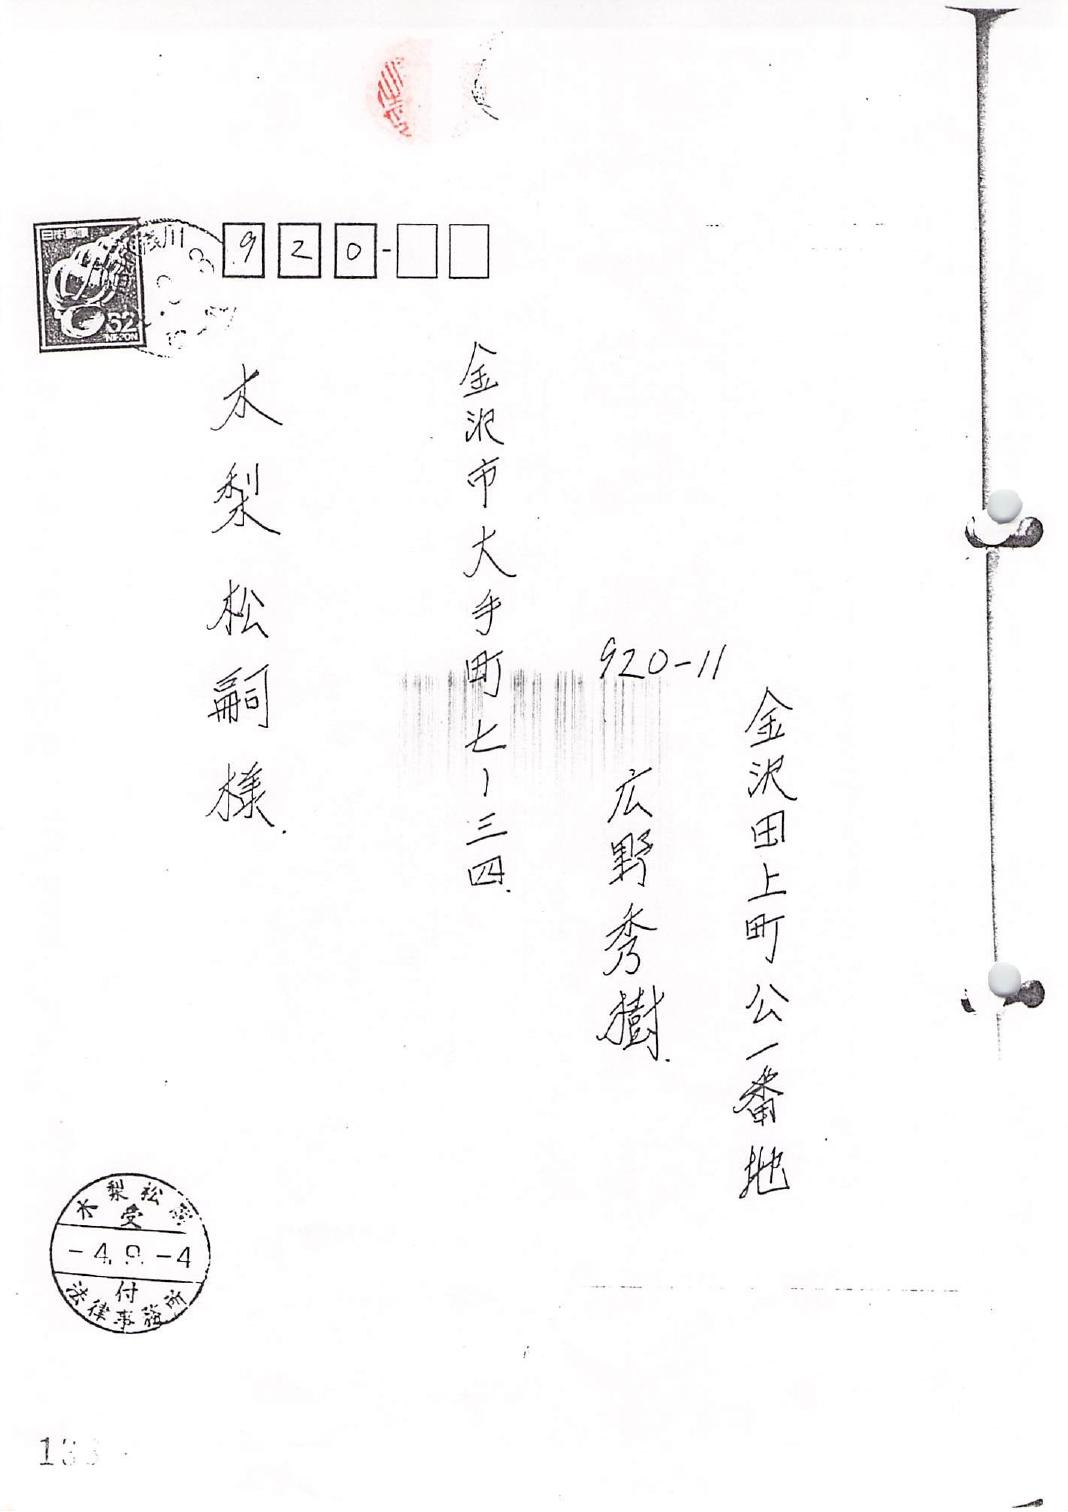 日本郵便
62
NIPPON
920-
金沢市大手町七ー三四.
木梨松嗣様.
920-11
金沢田上町公一番地
広野秀樹.
木梨松嗣
受
-4.9.-4
付
法律事務所